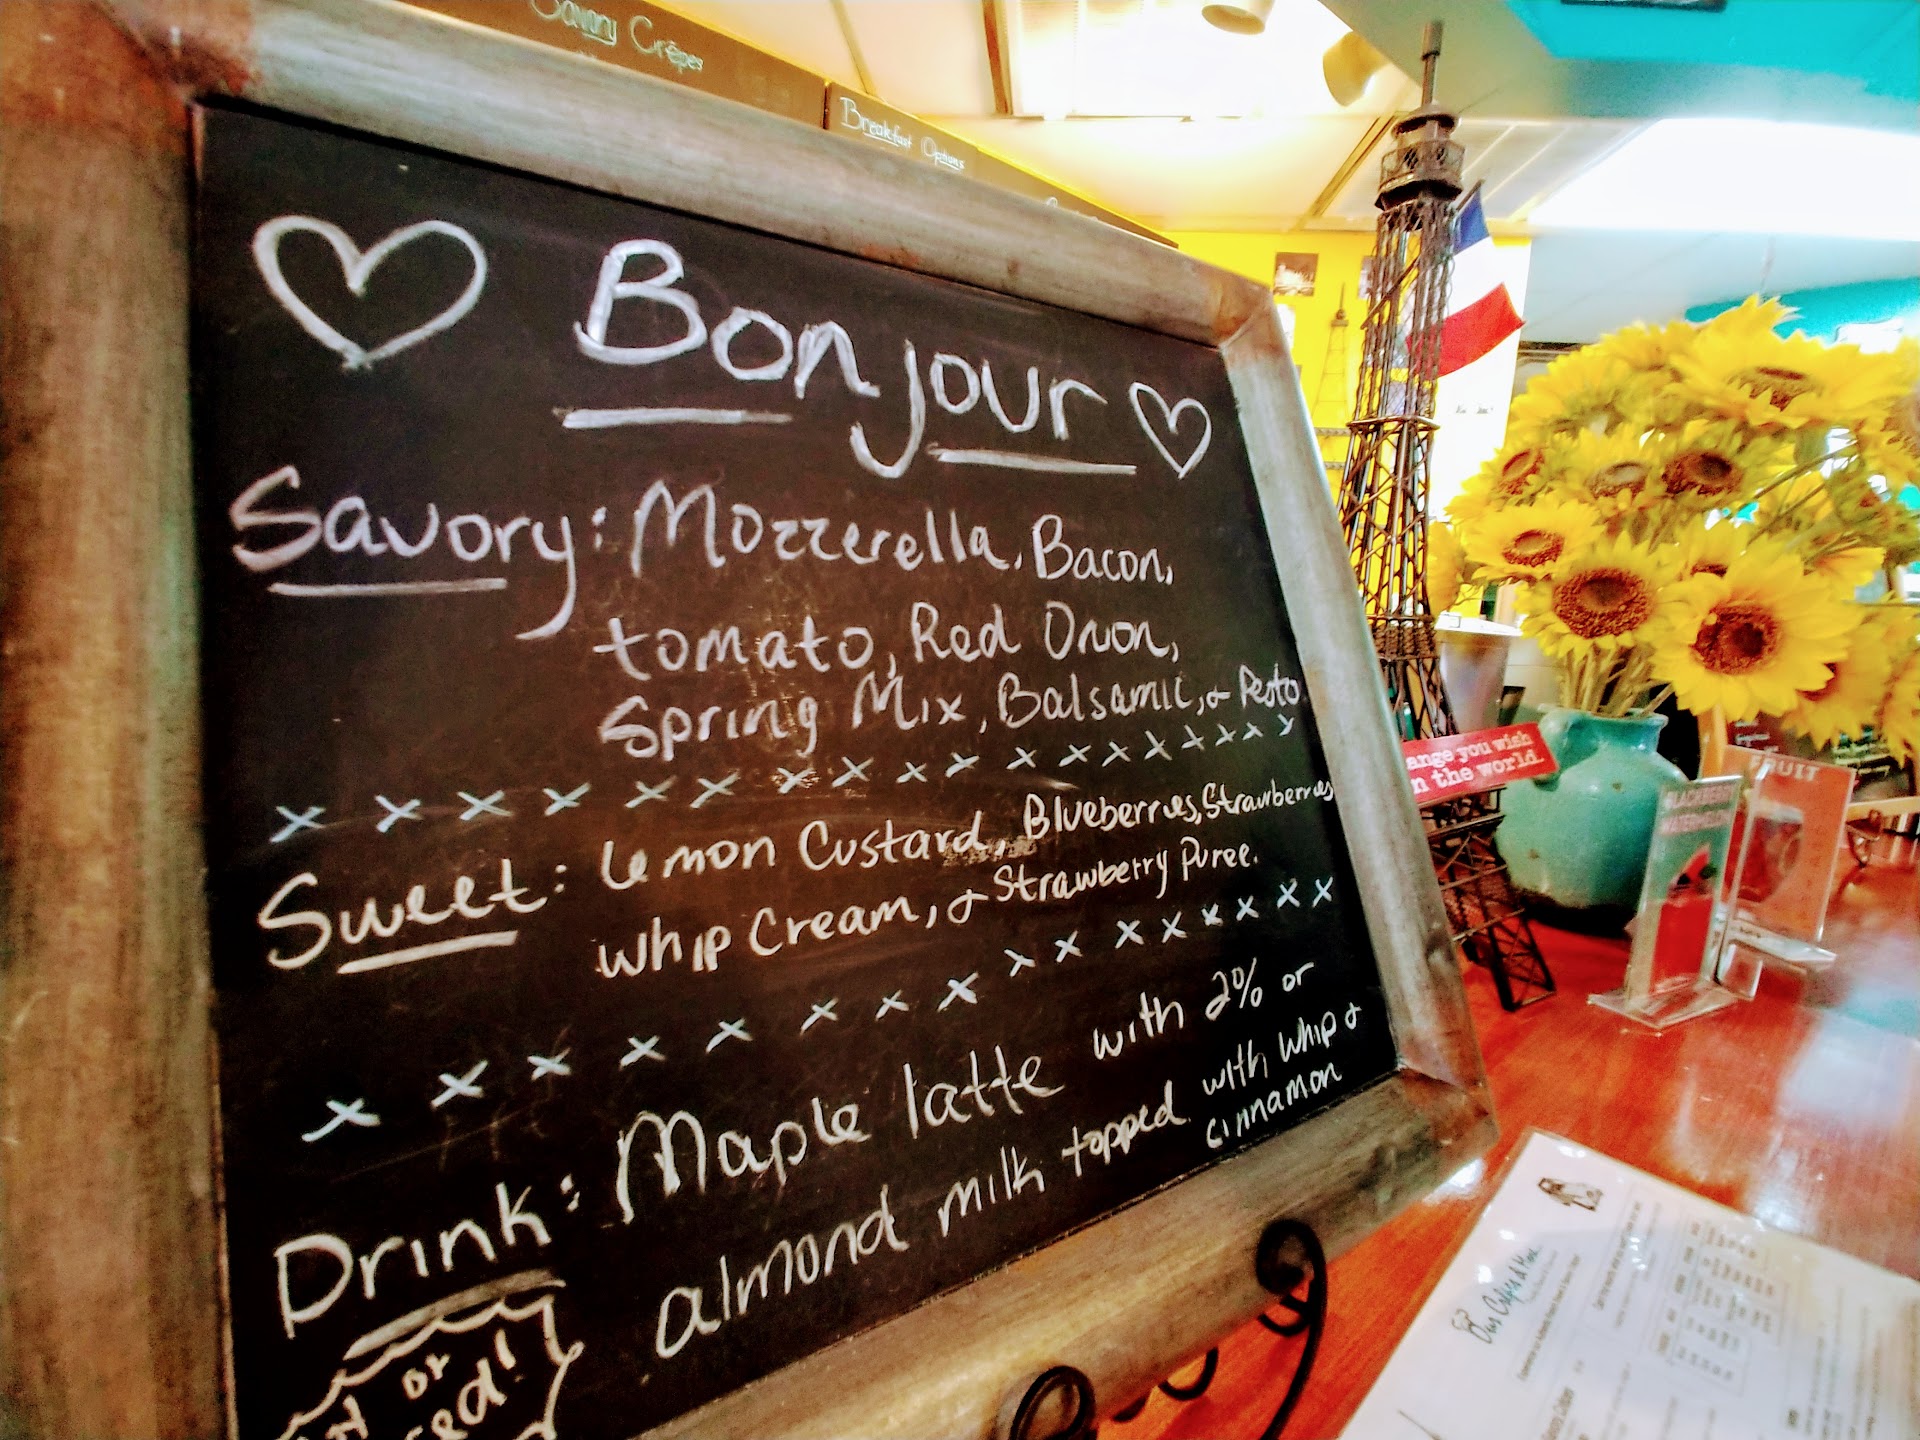 Savory Crêpes
Breakfast Options
Bonjour
Savory: Mozzerella, Bacon,
tomato, Red Onon,
Spring Mix, Balsamic, & Pesto.
Sweet: Lemon Custard, Blueberries, Strawberries,
Whip Cream, & Strawberry Puree.
Drink: Maple latte with 2% or
almond milk topped with whip &
cinnamon
or
ange you wish
n the world.
BLACKBERRY
WATERMELON
FRUIT